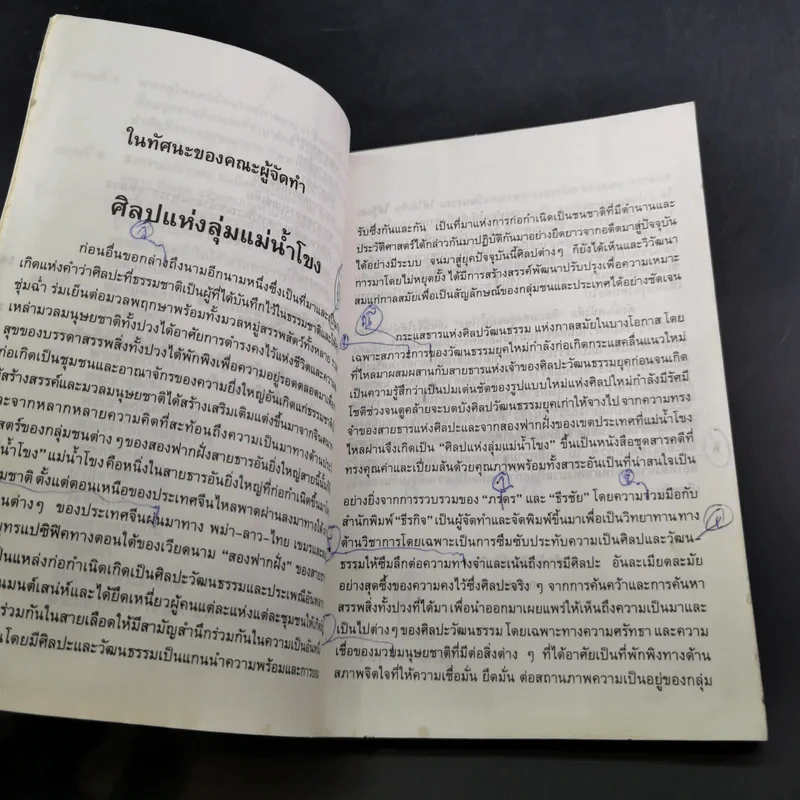 ในทัศนะของคณะผู้จัดทำ
ศิลปแห่งลุ่มแม่น้ำโขง
ก่อนอื่นขอกล่าวถึงนามอีกนามหนึ่งซึ่งเป็นที่มาและ
เกิดแห่งคำว่าศิลปะที่ธรรมชาติเป็นผู้ที่ได้บันทึกไว้ในธรรมชาติและ
ชุ่มฉ่ำ ร่มเย็นต่อมวลพฤกษาพร้อมทั้งมวลหมู่สรรพสัตว์ทั้งหลาย
เหล่ามวลมนุษยชาติทั้งปวงได้อาศัยการดำรงคงไว้แห่งชีวิตและ
สุขของบรรดาสรรพสิ่งทั้งปวงได้พักพิงเพื่อความอยู่รอดตลอดมา
ก่อเกิดเป็นชุมชนและอาณาจักรของความยิ่งใหญ่อันเกิดแก่ธรรมชาติ
สร้างสรรค์และมวลมนุษยชาติได้สร้างเสริมเติมแต่งขึ้นมาจาก
จากหลากหลายความคิดที่สะท้อนถึงความเป็นมาทางด้าน
ของกลุ่มชนต่าง ๆ ของสองฟากฝั่งสายธารอันยิ่งใหญ่สายนี้
แม่น้ำโขง" แม่น้ำโขง คือหนึ่งในสายธารอันยิ่งใหญ่ที่ก่อกำเนิดขึ้นมา
ตั้งแต่ตอนเหนือของประเทศจีนไหลพาดผ่านลงมาทางใต้
ต่างๆ ของประเทศจีนผ่านมาทาง พม่า-ลาว-ไทย เขมรและ
แปซิฟิคทางตอนใต้ของเวียดนาม "สองฟากฝั่ง" ของสายธาร
เป็นแหล่งก่อกำเนิดเกิดเป็นศิลปะวัฒนธรรมและประเพณีอัน
มนต์เสน่ห์และได้ยึดเหนี่ยวผู้คนแต่ละแห่งแต่ละชุมชนให้เกิด
ร่วมกันในสายเลือดให้มีสามัญสำนึกร่วมกันในความเป็น
โดยมีศิลปะและวัฒนธรรมเป็นแกนนำความพร้อมและการ
รับซึ่งกันและกัน เป็นที่มาแห่งการก่อกำเนิดเป็นชนชาติที่มีตำนานและ
ประวัติศาสตร์ได้กล่าวกันมาปฏิบัติกันมาอย่างยืดยาวจากอดีตมาสู่ปัจจุบัน
ได้อย่างมีระบบ จนมาสู่ยุคปัจจุบันนี้ศิลปต่างๆ ก็ยังได้เห็นและวิวัฒนา
การมาโดยไม่หยุดยั้ง ได้มีการสร้างสรรค์พัฒนาปรับปรุงเพื่อความเหมาะ
สมแก่กาลสมัยเพื่อเป็นสัญลักษณ์ของกลุ่มชนและประเทศได้อย่างชัดเจน
กระแสธารแห่งศิลปวัฒนธรรม แห่งกาลสมัยในบางโอกาส โดย
เฉพาะสภาวะการของวัฒนธรรมยุคใหม่กำลังก่อเกิดกระแสคลื่นแนวใหม่
ที่ไหลมาผสมผสานกับสายธารแห่งเจ้าของศิลปะวัฒนธรรมยุคก่อนจนเกิด
เป็นความรู้สึกว่าเป็นปมเด่นชัดของรูปแบบใหม่แห่งศิลปใหม่กำลังมีรัศมี
โชติช่วงจนดูคล้ายจะบดบังศิลปวัฒนธรรมยุคเก่าให้จางไป จากความทรง
จำของสายธารแห่งศิลปะและจากสองฟากฝั่งของเขตประเทศที่แม่น้ำโขง
ไหลผ่านจึงเกิดเป็น "ศิลปแห่งลุ่มแม่น้ำโขง" ขึ้นเป็นหนังสือชุดสารคดีที่
ทรงคุณค่าและเปี่ยมล้นด้วยคุณภาพพร้อมทั้งสาระอันเป็นที่น่าสนใจเป็น
อย่างยิ่งจากการรวบรวมของ "ภรัดร" และ "ธีรชัย" โดยความร่วมมือกับ
สำนักพิมพ์ "ธีรกิจ" เป็นผู้จัดทำและจัดพิมพ์ขึ้นมาเพื่อเป็นวิทยาทาน ทาง
ด้านวิชาการโดยเฉพาะเป็นการซึมซับประทับความเป็นศิลปและวัฒน-
ธรรมให้ซึมลึกต่อความทรงจำและเน้นถึงการมีศิลปะ อันละเมียดละมัย
อย่างสุดซึ้งของความคงไว้ซึ่งศิลปะจริง ๆ จากการค้นคว้าและการค้นหา
สรรพสิ่งทั้งปวงที่ได้มา เพื่อนำออกมาเผยแพร่ให้เห็นถึงความเป็นมาและ
เป็นไปต่างๆ ของศิลปะวัฒนธรรม โดยเฉพาะทางความศรัทธา และความ
เชื่อของมวลมนุษยชาติที่มีต่อสิ่งต่าง ๆ ที่ได้อาศัยเป็นที่พักพิงทางด้าน
สภาพจิตใจที่ให้ความเชื่อมั่น ยึดมั่น ต่อสถานภาพความเป็นอยู่ของกลุ่ม